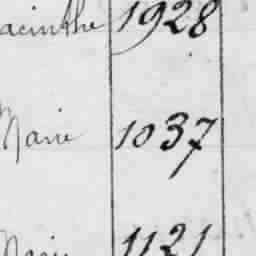 acinthe 1928
Marie 1037
Marie 1121